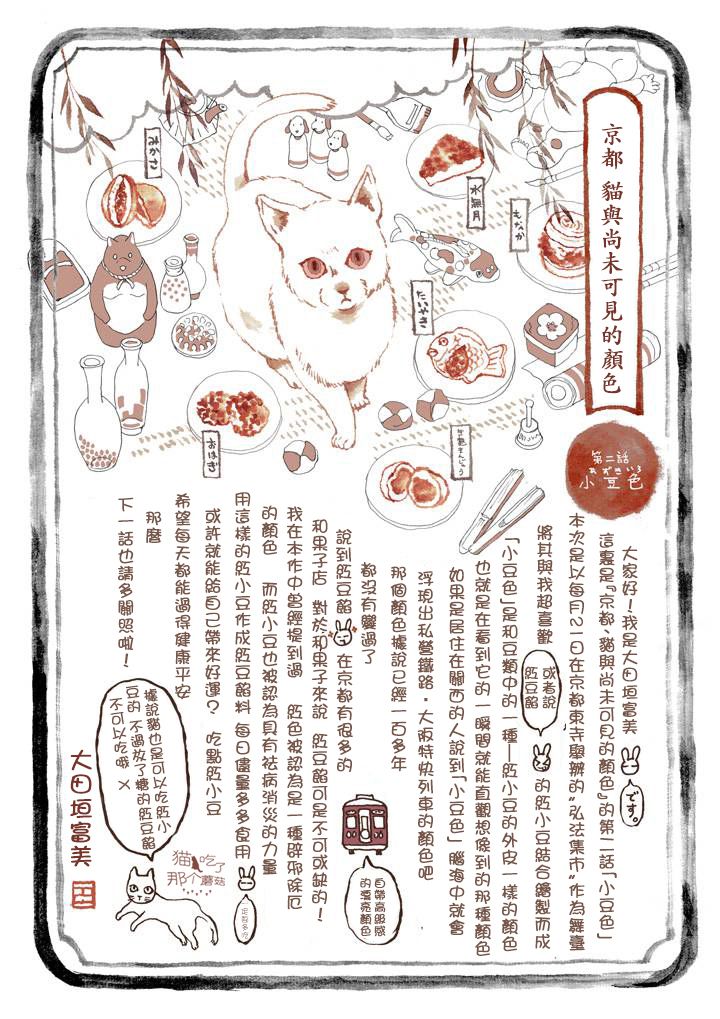 京都 貓與尚未可見的顏色
第二話
あずきいろ
小豆色
みかさ
水無月
もなか
たいやき
おはぎ
大家好！我是大田垣富美
です。
這裏是『京都、貓與尚未可見的顏色』的第二話「小豆色」
本次是以每月21日在京都東寺舉辦的“弘法集市”作為舞臺
將其與我超喜歡
或者說
紅豆餡
的紅小豆結合繪製而成
「小豆色」是和豆類中的一種—紅小豆的外皮一樣的顏色
也就是在看到它的一瞬間就能直觀想像到的那種顏色
如果是居住在關西的人說到「小豆色」腦海中就會
浮現出私營鐵路・大阪特快列車的顏色吧
那個顏色據說已經一百多年
都沒有變過了
自帶高級感
的漂亮顏色
說到紅豆餡
在京都有很多的
和果子店 對於和果子來說 紅豆餡可是不可或缺的！
我在本作中曾經提到過 紅色被認為是一種辟邪除厄
的顏色 而紅小豆也被認為具有祛病消災的力量
用這樣的紅小豆作成紅豆餡料 每日儘量多多食用
或許就能給自己帶來好運？ 吃點紅小豆
希望每天都能過得健康平安
那麼
下一話也請多關照啦！
據說貓也是可以吃紅小
豆的 不過放了糖的紅豆餡
不可以吃哦 x
貓吃了
那个蘑菇
大田垣富美